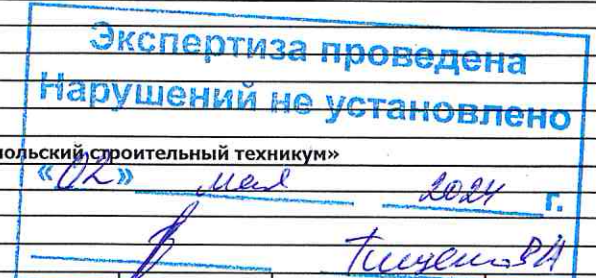 Экспертиза проведена
Нарушений не установлено
польский строительный техникум»
«02» мая 2024 г.